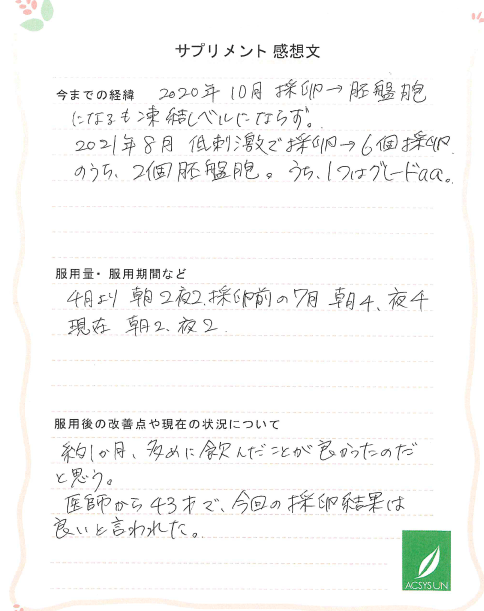 サプリメント 感想文
今までの経緯 2020年10月 採卵→胚盤胞
になるも凍結レベルにならず。
2021年8月 低刺激で採卵→6個採卵
のうち、2個胚盤胞。うち、1つはグレードaa。
服用量・服用期間など
4月より 朝2夜2.採卵前の7月 朝4、夜4
現在 朝2、夜2.
服用後の改善点や現在の状況について
約1か月、多めに飲んだことが良かったのだ
と思う。
医師から43才で、今回の採卵結果は
良いと言われた。
ACSYSUN